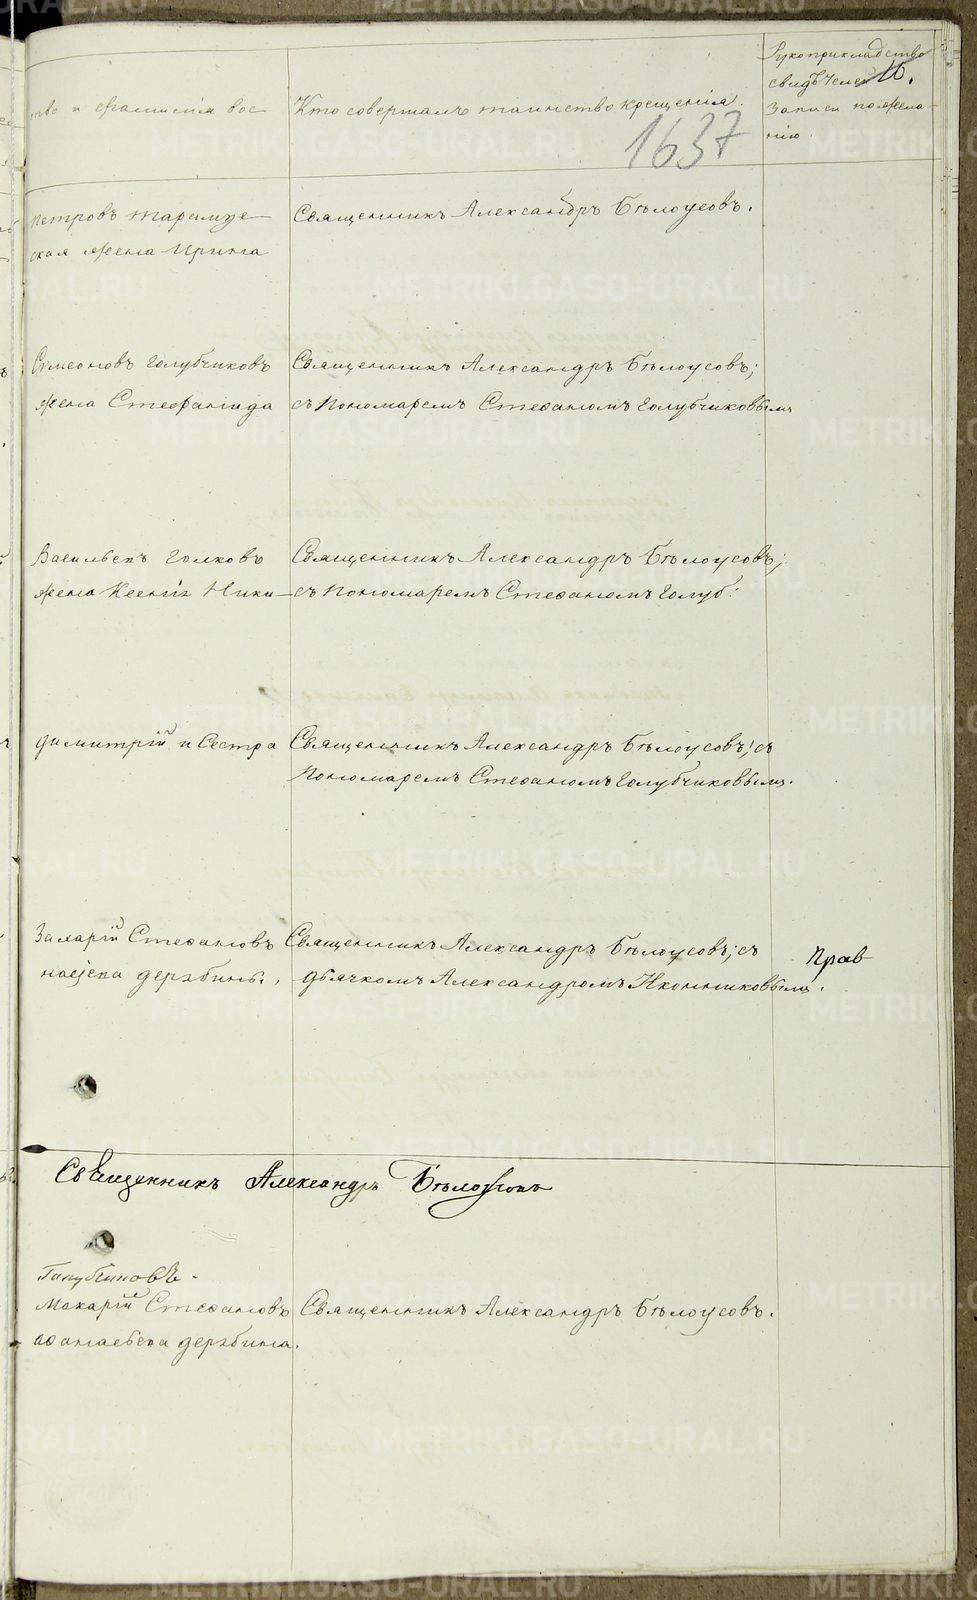 Рукоприкладство
свидѣтелей 16.
тво и фамилія вос-
Кто совершалъ таинство крещенія.
записи по жела-
нію.
1637
Петровъ
Священникъ Александръ Бѣлоусовъ.
ская жена Ирина
Симеоновъ Голубчиковъ
Священникъ Александръ Бѣлоусовъ;
жена Стефанида
съ Пономаремъ Стефаномъ Голубчиковымъ
Васильевъ Голковъ
Священникъ Александръ Бѣлоусовъ;
жена Ксенія Ники-
съ Пономаремъ Стефаномъ Голуб:
Димитрій и Сестра
Священникъ Александръ Бѣлоусовъ; съ
Пономаремъ Стефаномъ Голубчиковымъ.
Захарій Стефановъ
Священникъ Александръ Бѣлоусовъ; съ
Прав-
дьячкомъ Александромъ Иконниковымъ.
Священникъ Александръ Бѣлоусовъ
Голубчиковъ.
Макарій Стефановъ
Священникъ Александръ Бѣлоусовъ.
Дерябина.
METRIKI.GASO-URAL.RU